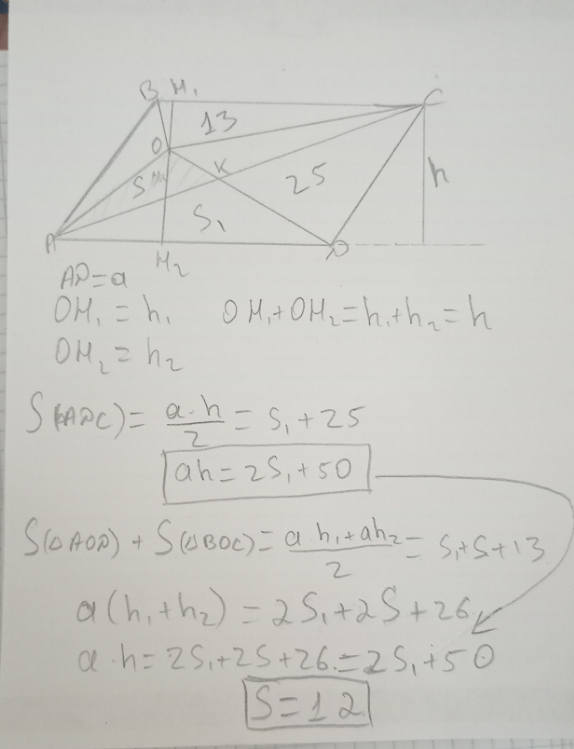 B H₁ C
13
O
K
S
25
h
S₁
A
H₂
D
AD=a
OH₁=h₁ OH₁+OH₂=h₁+h₂=h
OH₂=h₂
S(ADC)=a·h/2=S₁+25
ah=2S₁+50
S(△AOD)+S(△BOC)=a·h₁+ah₂/2=S₁+S+13
a(h₁+h₂)=2S₁+2S+26
a·h=2S₁+2S+26=2S₁+50
S=12